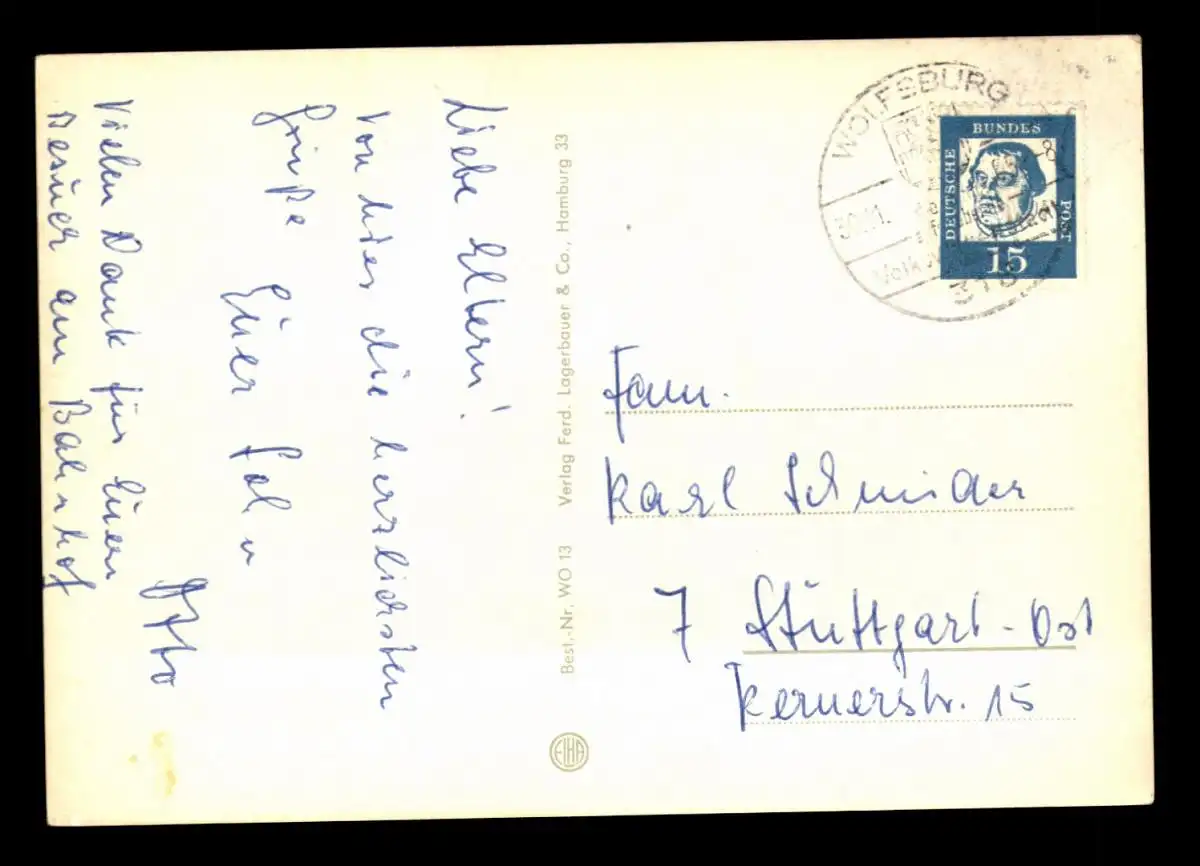 Liebe Eltern!
Von hier die herzlichsten
Grüße
Euer Sohn
Otto
Vielen Dank für Euren
Besuch am Bahnhof
Best.-Nr. WO 13 Verlag Ferd. Lagerbauer & Co., Hamburg 33
EIHA
WOLFSBURG
DEUTSCHE
BUNDES
POST
15
Fam.
Karl Schnider
7 Stuttgart-Ost
Kernerstr. 15